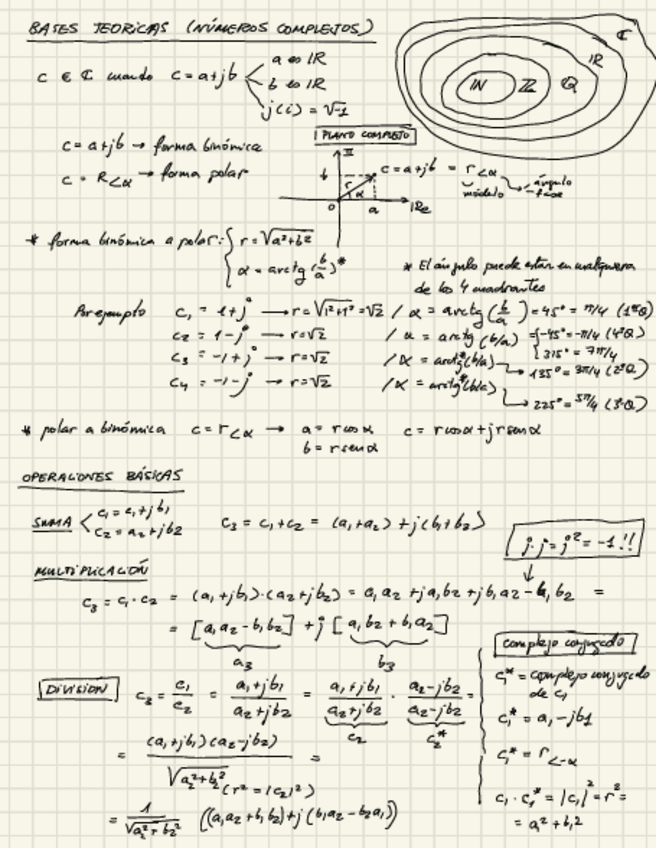 BASES TEORICAS (NÚMEROS COMPLEJOS)
c ∈ ℂ cuando c = a+jb
a ∈ IR
b ∈ IR
j(i) = √-1
IN ℤ ℚ IR ℂ
c = a+jb → forma binómica
c = R∠α → forma polar
PLANO COMPLEJO
II
b
r
α
0
a
IRe
c = a+jb = r∠α
módulo
ángulo
fase
* forma binómica a polar: { r = √a²+b²
α = arctg (b/a)*
* El ángulo puede estar en cualquiera
de los 4 cuadrantes
Por ejemplo c₁ = 1+j → r = √1²+1² = √2 / α = arctg (b/a) = 45° = π/4 (1ºQ)
c₂ = 1-j → r = √2 / α = arctg (b/a) = { -45° = -π/4 (4ºQ)
315° = 7π/4
c₃ = -1+j → r = √2 / α = arctg*(b/a) → 135° = 3π/4 (2ºQ)
c₄ = -1-j → r = √2 / α = arctg*(b/a)
→ 225° = 5π/4 (3ºQ)
* polar a binómica c = r∠α → a = r cosα c = r cosα + j r senα
b = r senα
OPERACIONES BÁSICAS
SUMA < c₁ = c₁+jb₁
c₂ = a₂+jb₂
c₃ = c₁+c₂ = (a₁+a₂) + j(b₁+b₂)
j·j = j² = -1 !!
MULTIPLICACIÓN
c₃ = c₁·c₂ = (a₁+jb₁)·(a₂+jb₂) = a₁a₂ + ja₁b₂ + jb₁a₂ - b₁b₂ =
= [a₁a₂ - b₁b₂] + j [a₁b₂ + b₁a₂]
a₃ b₃
DIVISIÓN c₃ = c₁/c₂ = (a₁+jb₁)/(a₂+jb₂) = (a₁+jb₁)/(a₂+jb₂) · (a₂-jb₂)/(a₂-jb₂) =
c₂ c₂*
= (a₁+jb₁)(a₂-jb₂) / √a₂²+b₂² =
(r² = |c₂|²)
= 1/√a₂²+b₂² ((a₁a₂+b₁b₂)+j(b₁a₂-b₂a₁))
complejo conjugado
c₁* = complejo conjugado
de c₁
c₁* = a₁-jb1
c₁* = r∠-α
c₁·c₁* = |c₁|² = r² =
= a₁²+b₁²